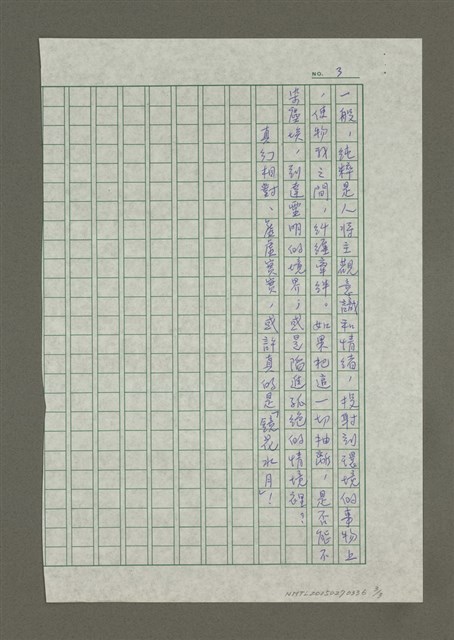 NO. 3
一般，純粹是人將主觀意識和情緒，投射到環境的事物上
，使物我之間，糾纏牽絆。如果把這一切抽離，是否能不
染塵埃，到達靈明的境界；或是陷進孤絕的情境裡？
真幻相對、虛虛實實，或許真的是「鏡花水月」！
NMTL20050070336 3/3